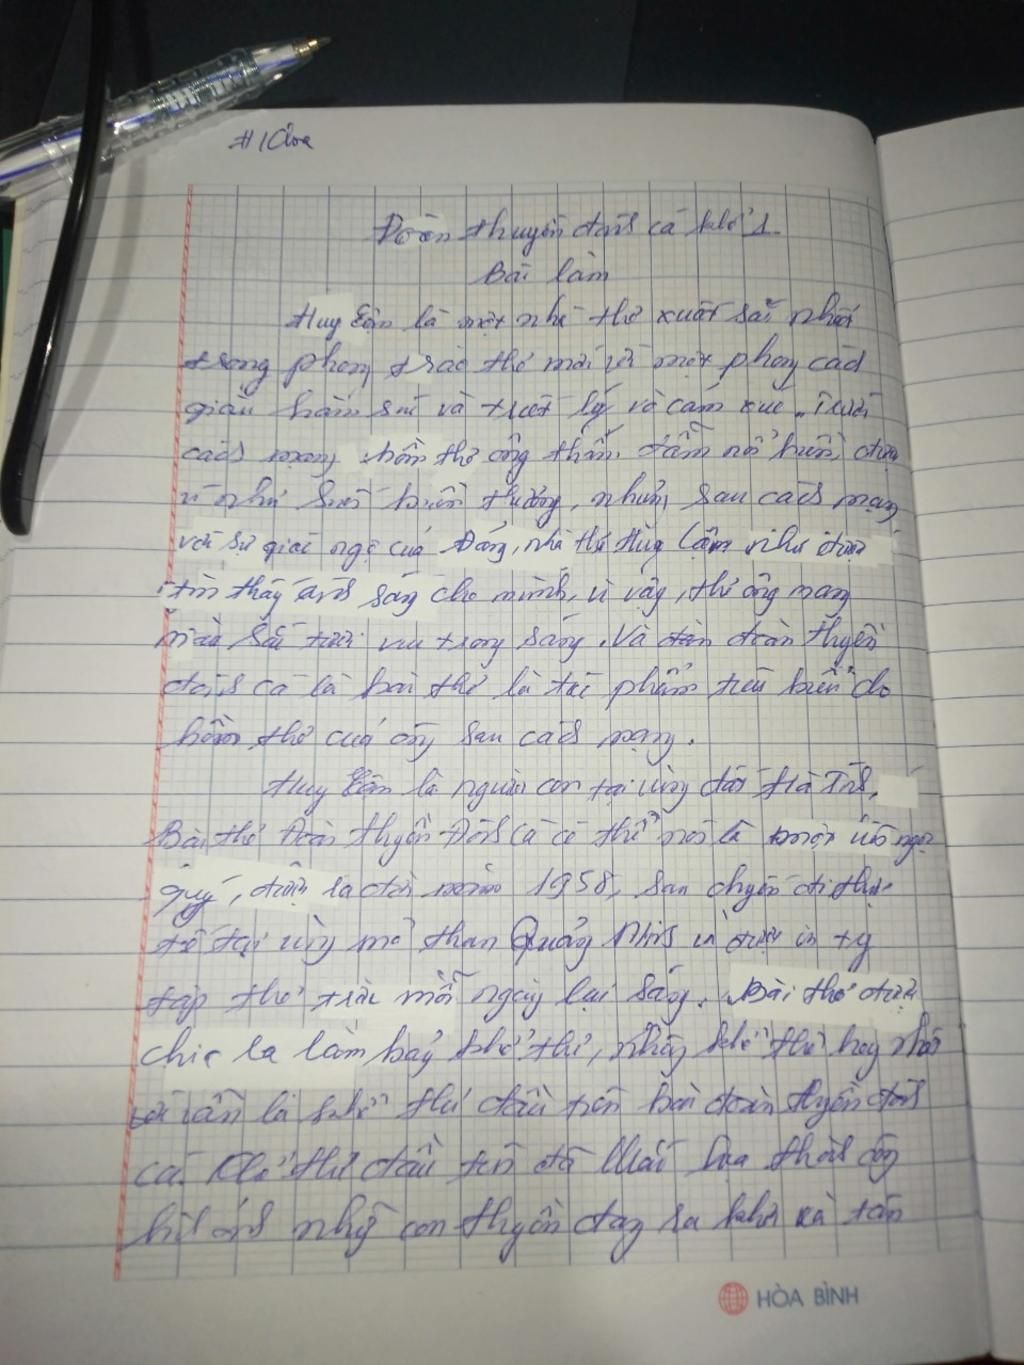 Đoàn thuyền đánh cá khổ 1
Bài làm
Huy Cận là một nhà thơ xuất sắc nhất
trong phong trào thơ mới với một phong cách
giàu hàm súc và triết lý và cảm xúc. Trước
cách mạng hồn thơ ông thấm đẫm nỗi buồn, được
ví như buồn thương, nhưng sau cách mạng
với sự giác ngộ của Đảng, nhà thơ Huy Cận như được
tìm thấy ánh sáng cho mình, vì vậy, thơ ông mang
màu sắc tươi vui trong sáng. Và đoàn thuyền
đánh cá là bài thơ là tác phẩm tiêu biểu cho
hồn thơ của ông sau cách mạng.
Huy Cận là người con tại vùng đất Hà Tĩnh,
Bài thơ Đoàn thuyền Đánh Cá có thể nói là một viên ngọc
quý, được ra đời năm 1958, sau chuyến đi thực
tế tại vùng mỏ than Quảng Ninh và được in
tập thơ trời mỗi ngày lại sáng. Bài thơ được
chia ra làm bảy khổ thơ, những khổ thơ hay nhất
là khổ thơ đầu tiên bài đoàn thuyền đánh
cá. Khổ thơ đầu tiên đã khắc họa thành công
hình ảnh những con thuyền đang ra khơi và
HÒA BÌNH